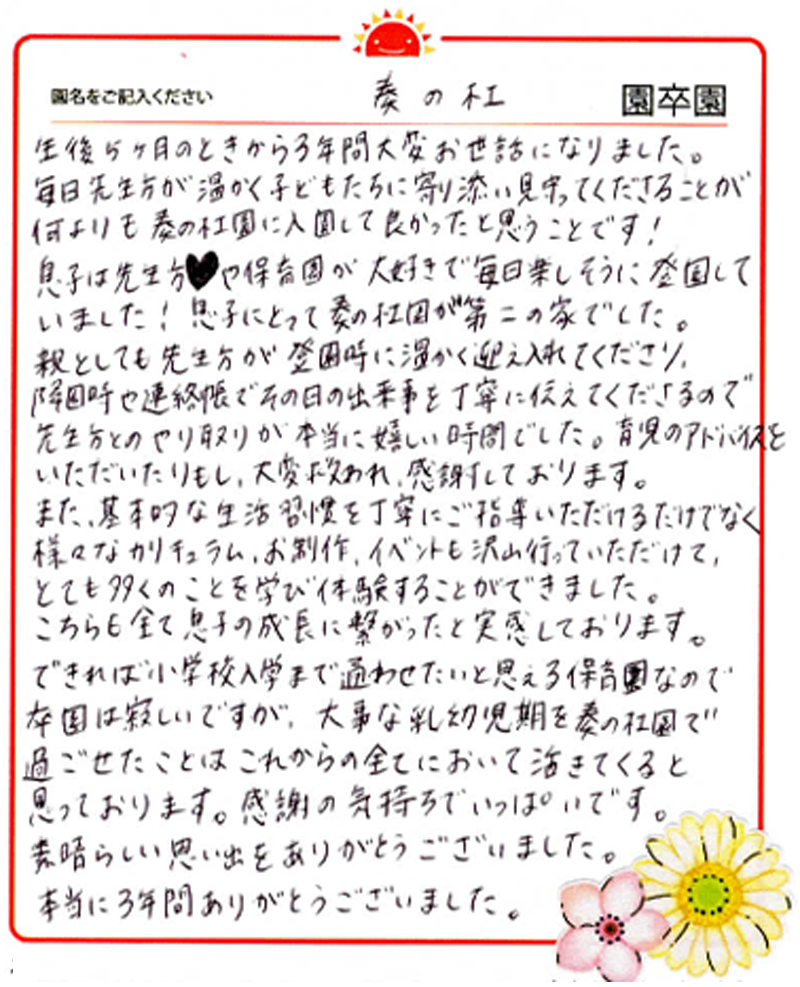 園名をご記入ください 奏の杜 園卒園
生後5ヶ月のときから3年間大変お世話になりました。
毎日先生方が温かく子どもたちに寄り添い見守ってくださることが
何よりも奏の杜園に入園して良かったと思うことです!
息子は先生方♥や保育園が大好きで毎日楽しそうに登園して
いました!息子にとって奏の杜園が第二の家でした。
親としても先生方が登園時に温かく迎え入れてくださり、
降園時や連絡帳でその日の出来事を丁寧に伝えてくださるので
先生方とのやり取りが本当に嬉しい時間でした。育児のアドバイスを
いただいたりもし、大変救われ、感謝しております。
また、基本的な生活習慣を丁寧にご指導いただけるだけでなく
様々なカリキュラム、お制作、イベントも沢山行っていただけて、
とても多くのことを学び体験することができました。
こちらも全て息子の成長に繋がったと実感しております。
できれば小学校入学まで通わせたいと思える保育園なので
卒園は寂しいですが、大事な乳幼児期を奏の杜園で
過ごせたことはこれからの全てにおいて活きてくると
思っております。感謝の気持ちでいっぱいです。
素晴らしい思い出をありがとうございました。
本当に3年間ありがとうございました。